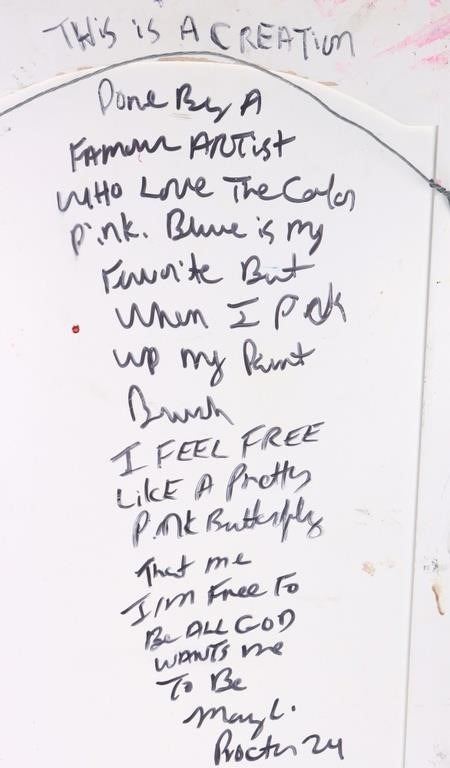 THIS IS A CREATION
Done By A
Famous ARTist
WHO Love The Color
Pink. Blue is my
Favorite But
When I Pick
up my Paint
Brush
I FEEL FREE
LikE A Pretty
Pink Butterfly
That me
I'm Free To
Be ALL GOD
WANTS me
To Be
Mary L.
Proctor 24